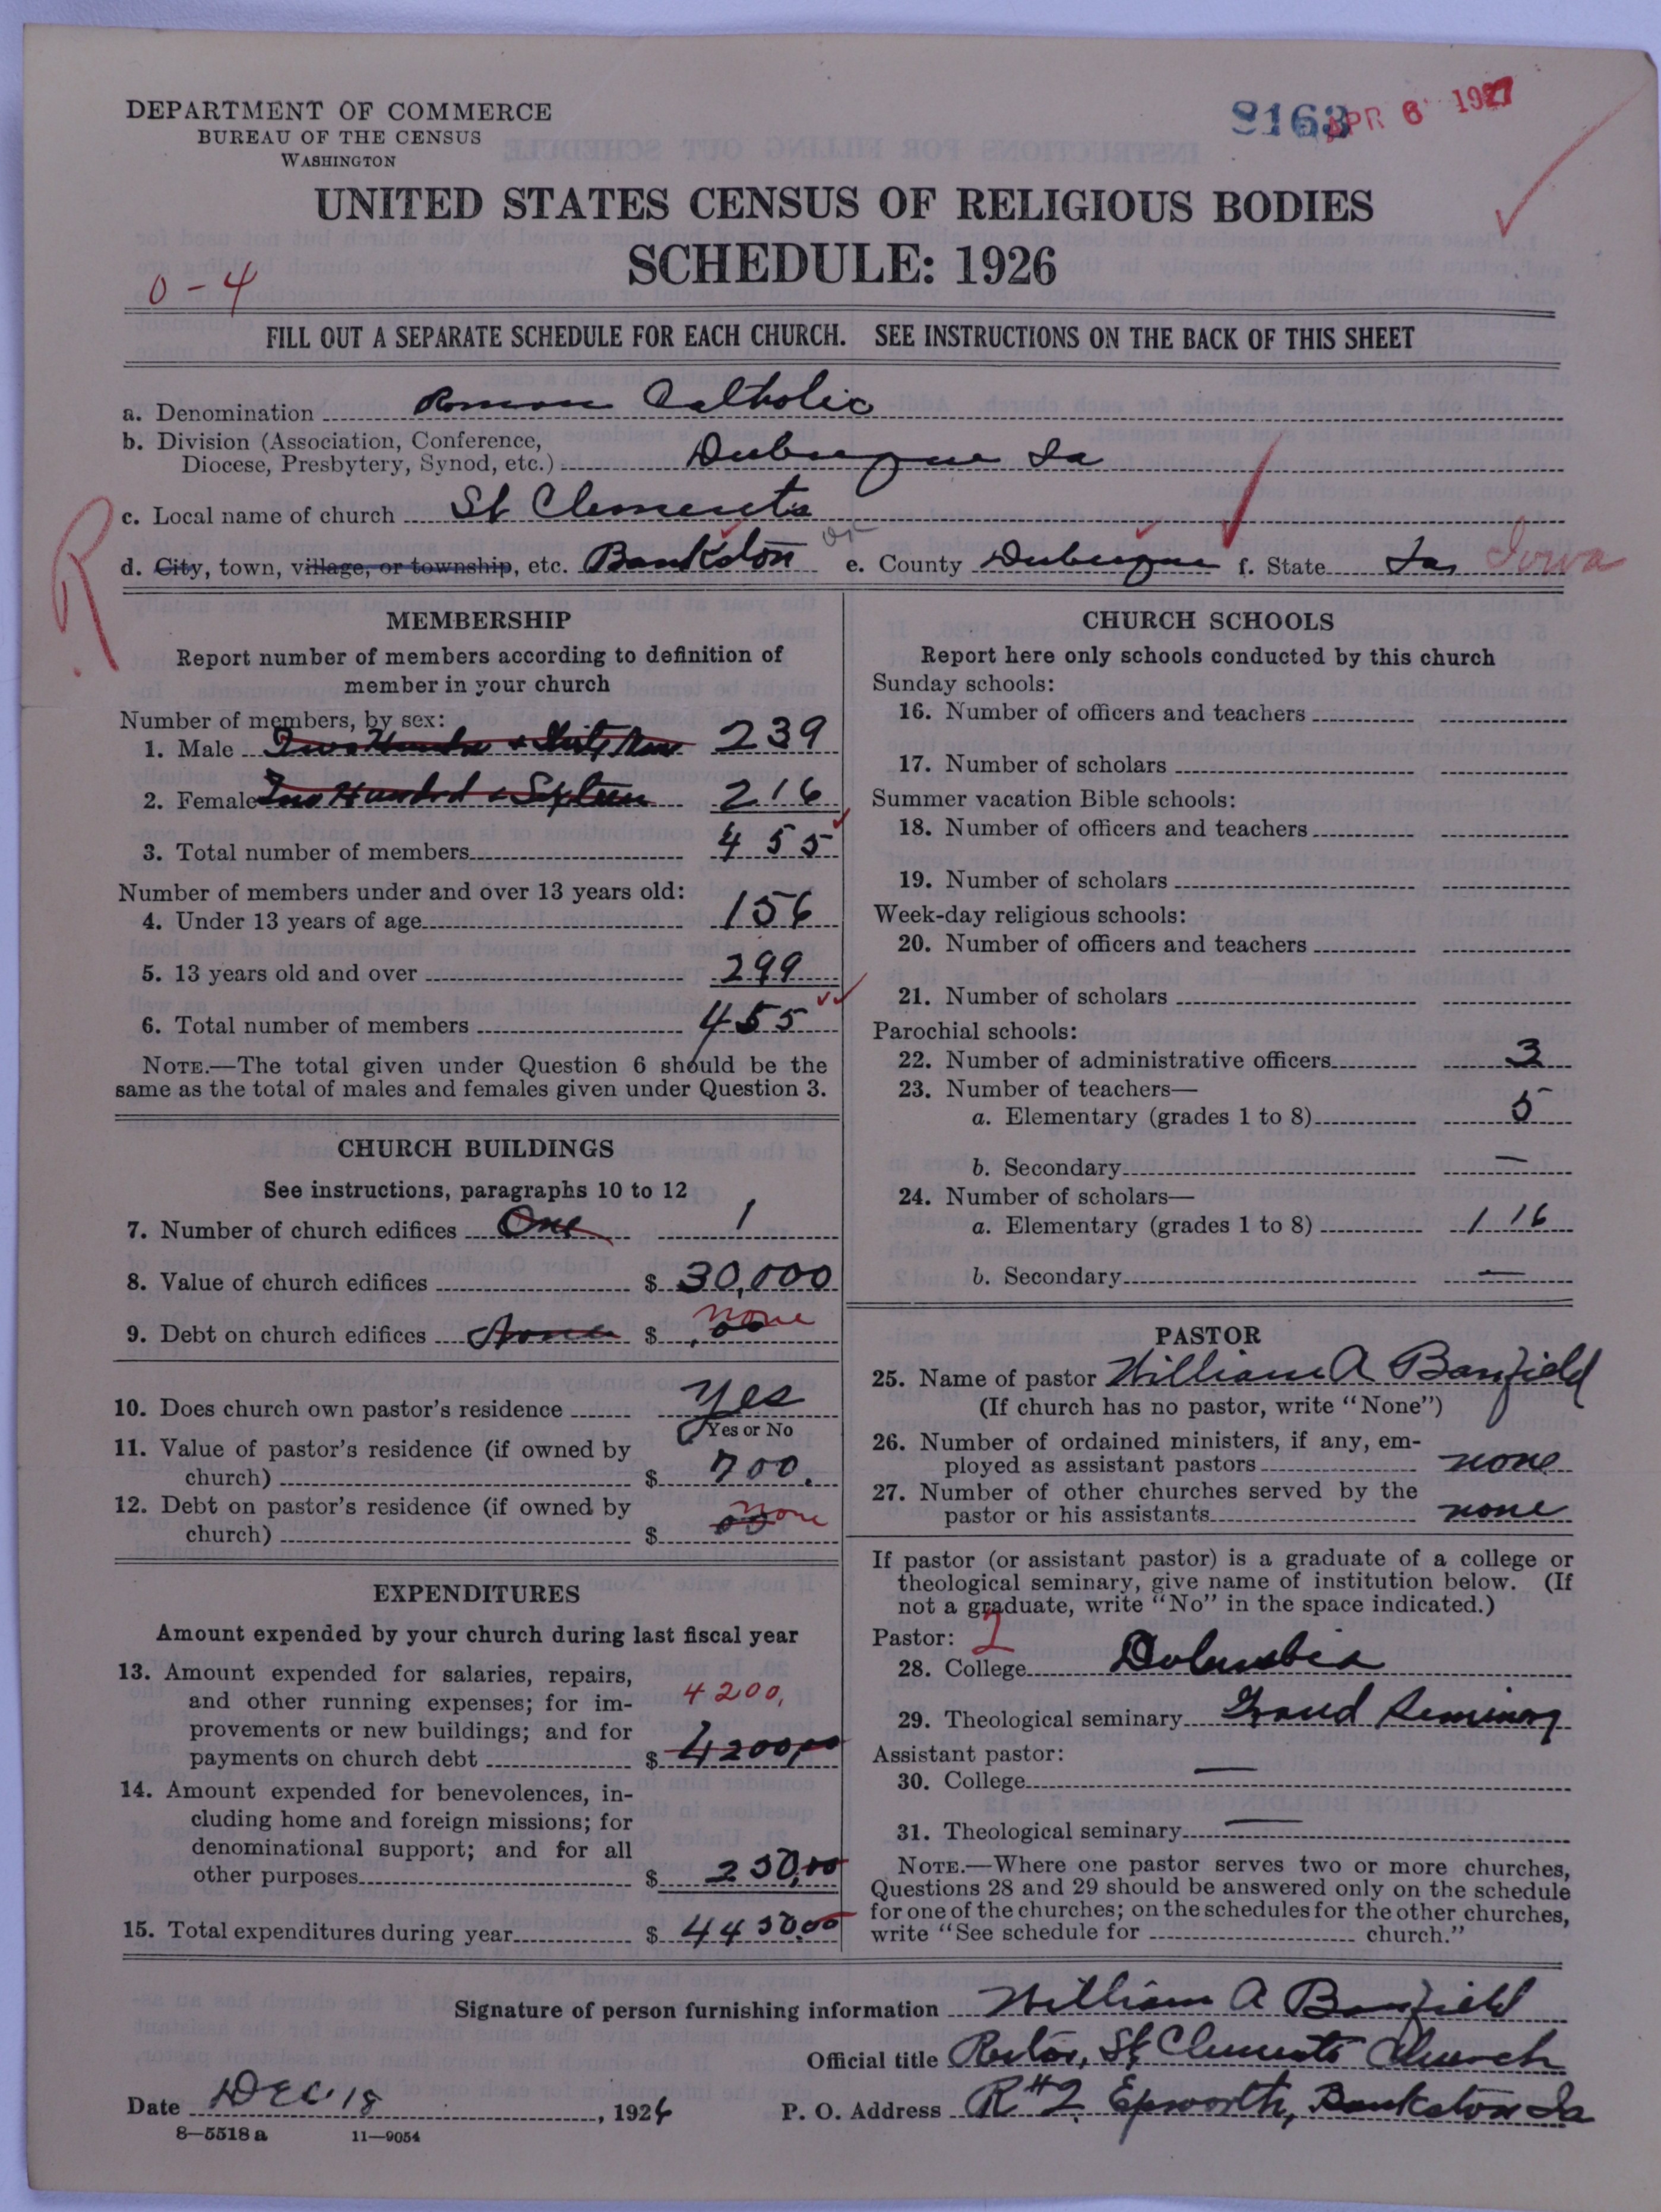 DEPARTMENT OF COMMERCE
BUREAU OF THE CENSUS
WASHINGTON
8163
APR 6 1927
UNITED STATES CENSUS OF RELIGIOUS BODIES
SCHEDULE: 1926
0-4
FILL OUT A SEPARATE SCHEDULE FOR EACH CHURCH. SEE INSTRUCTIONS ON THE BACK OF THIS SHEET
a. Denomination Roman Catholic
b. Division (Association, Conference,
Diocese, Presbytery, Synod, etc.) Dubuque Ia
c. Local name of church St Clements
R
d. City, town, village, or township, etc. Bankston e. County Dubuque f. State Ia, Iowa
MEMBERSHIP
Report number of members according to definition of
member in your church
Number of members, by sex:
1. Male Two Hundred + Thirty Nine 239
2. Female Two Hundred + Sixteen 216
3. Total number of members 455
Number of members under and over 13 years old:
4. Under 13 years of age 156
5. 13 years old and over 299
6. Total number of members 455
NOTE.—The total given under Question 6 should be the
same as the total of males and females given under Question 3.
CHURCH BUILDINGS
See instructions, paragraphs 10 to 12
7. Number of church edifices One 1
8. Value of church edifices $ 30,000
9. Debt on church edifices None $ .00 none
10. Does church own pastor's residence Yes
Yes or No
11. Value of pastor's residence (if owned by
church) $ 700.
12. Debt on pastor's residence (if owned by
church) $ 00 none
EXPENDITURES
Amount expended by your church during last fiscal year
13. Amount expended for salaries, repairs,
and other running expenses; for im- 4200,
provements or new buildings; and for
payments on church debt $ 4200,00
14. Amount expended for benevolences, in-
cluding home and foreign missions; for
denominational support; and for all
other purposes $ 250,00
15. Total expenditures during year $ 4450.00
CHURCH SCHOOLS
Report here only schools conducted by this church
Sunday schools:
16. Number of officers and teachers
17. Number of scholars
Summer vacation Bible schools:
18. Number of officers and teachers
19. Number of scholars
Week-day religious schools:
20. Number of officers and teachers
21. Number of scholars
Parochial schools:
22. Number of administrative officers 3
23. Number of teachers—
a. Elementary (grades 1 to 8) 5
b. Secondary —
24. Number of scholars—
a. Elementary (grades 1 to 8) 116
b. Secondary —
PASTOR
25. Name of pastor William A Banfield
(If church has no pastor, write "None")
26. Number of ordained ministers, if any, em-
ployed as assistant pastors none
27. Number of other churches served by the
pastor or his assistants none
If pastor (or assistant pastor) is a graduate of a college or
theological seminary, give name of institution below. (If
not a graduate, write "No" in the space indicated.)
Pastor: 2
28. College Columbia
29. Theological seminary Grand Seminary
Assistant pastor:
30. College —
31. Theological seminary —
NOTE.—Where one pastor serves two or more churches,
Questions 28 and 29 should be answered only on the schedule
for one of the churches; on the schedules for the other churches,
write "See schedule for church."
Signature of person furnishing information William A Banfield
Official title Rector, St Clements Church
Date Dec. 18, 1926 P. O. Address R#2 Epworth, Bankston Ia
8—5518 a 11—9054